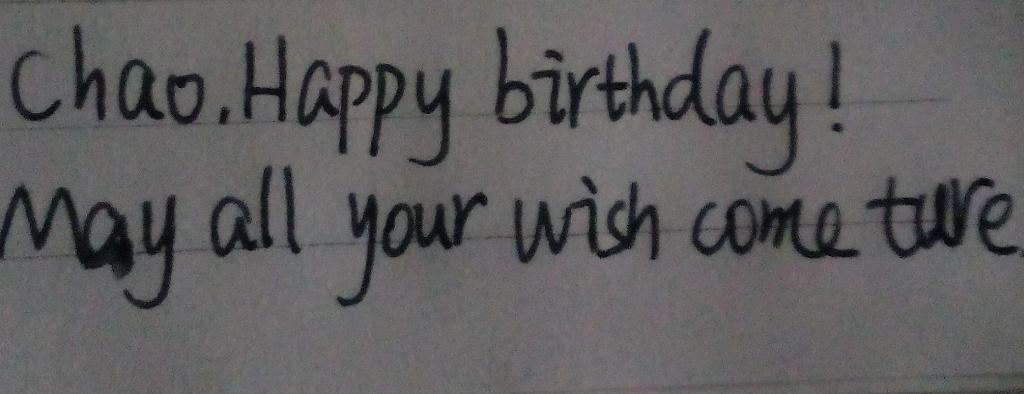 Chao. Happy birthday!
May all your wish come ture.